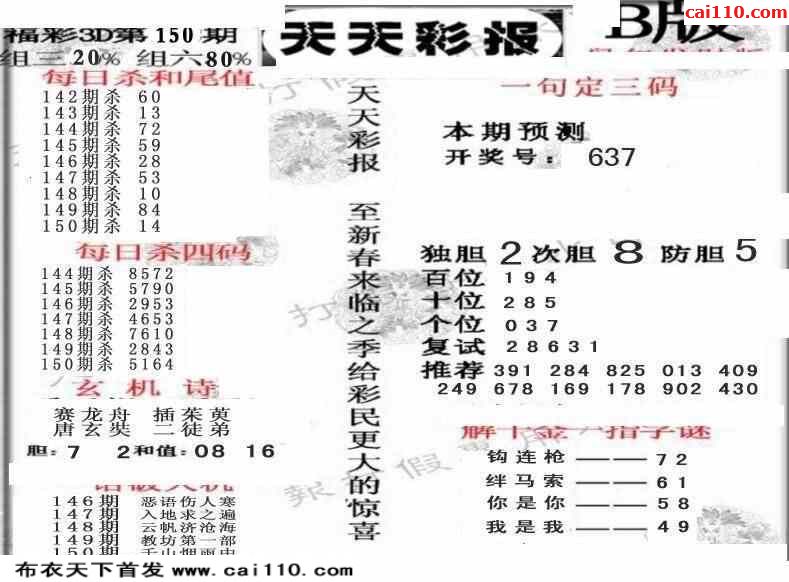 福彩3D第150期
组三20% 组六80%
天天彩报
B版
cai110.com
每日杀和尾值
142期杀 60
143期杀 13
144期杀 72
145期杀 59
146期杀 28
147期杀 53
148期杀 10
149期杀 84
150期杀 14
每日杀四码
144期杀 8572
145期杀 5790
146期杀 2953
147期杀 4653
148期杀 7610
149期杀 2843
150期杀 5164
玄机诗
赛龙舟 插茱萸
唐玄奘 二徒弟
胆:7 2和值:08 16
146期 恶语伤人寒
147期 入地求之遍
148期 云帆济沧海
149期 教坊第一部
150期 千山烟雨中
天天彩报 至新春来临之季给彩民更大的惊喜
一句定三码
本期预测
开奖号: 637
独胆 2 次胆 8 防胆 5
百位 194
十位 285
个位 037
复试 28631
推荐 391 284 825 013 409
249 678 169 178 902 430
钩连枪——72
绊马索——61
你是你——58
我是我——49
布衣天下首发 www.cai110.com